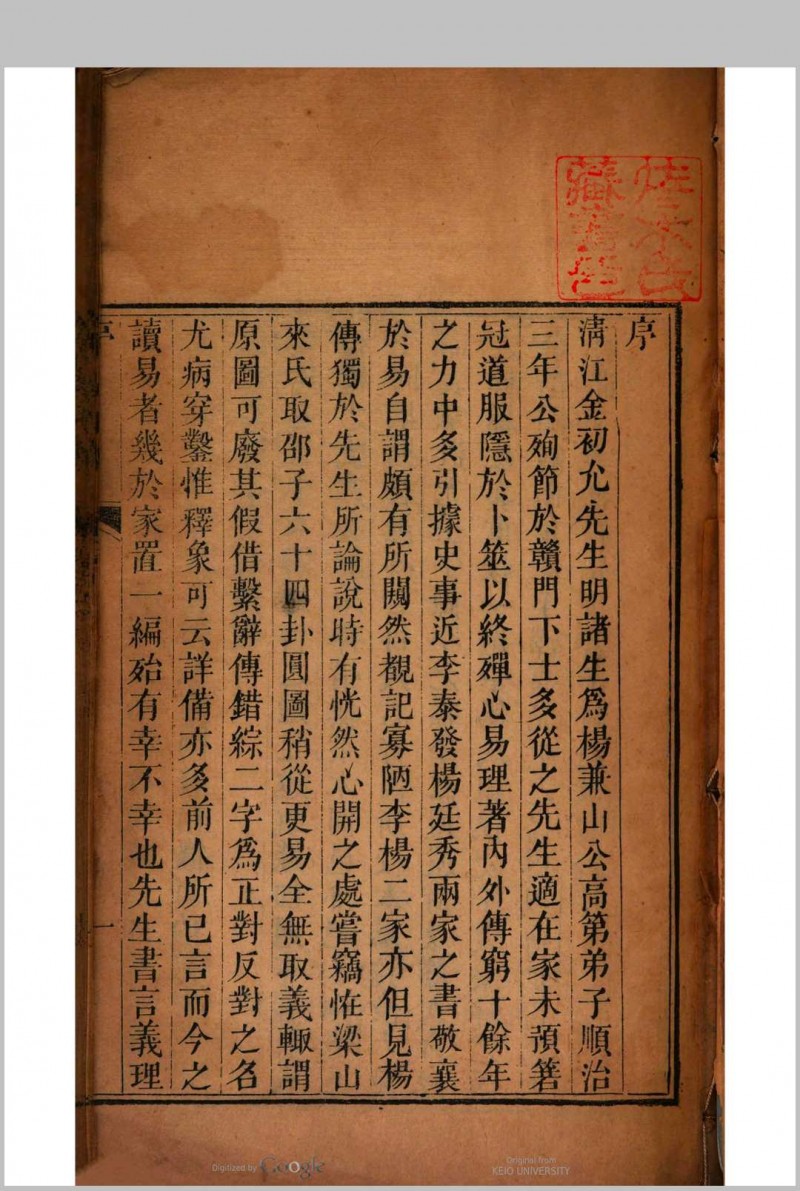 序
淸江金初允先生明諸生爲楊兼山公高第弟子順治
三年公殉節於贛門下士多從之先生適在家未預箬
冠道服隱於卜筮以終殫心易理著內外傳窮十餘年
之力中多引據史事近李泰發楊廷秀兩家之書敬襄
於易自謂頗有所闚然覩記寡陋李楊二家亦但見楊
傳獨於先生所論說時有恍然心開之處嘗竊恠梁山
來氏取邵子六十四卦圓圖稍從更易全無取義輙謂
原圖可廢其假借繫辭傳錯綜二字爲正對反對之名
尤病穿鑿惟釋象可云詳備亦多前人所已言而今之
讀易者幾於家置一編殆有幸不幸也先生書言義理
序
一
Digitized by Google
Original from
KEIO UNIVERSITY